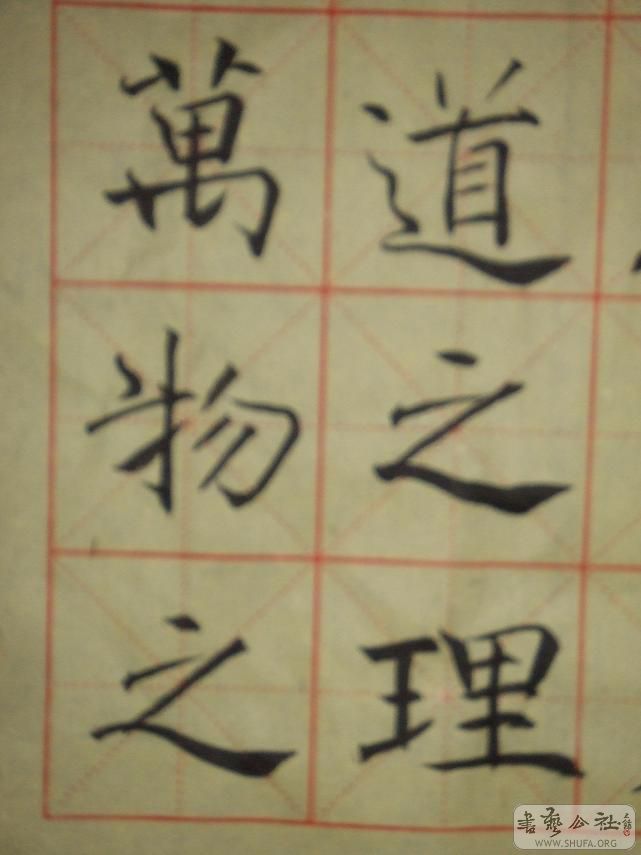 道之理
萬物之
書藝公社
WWW.SHUFA.ORG